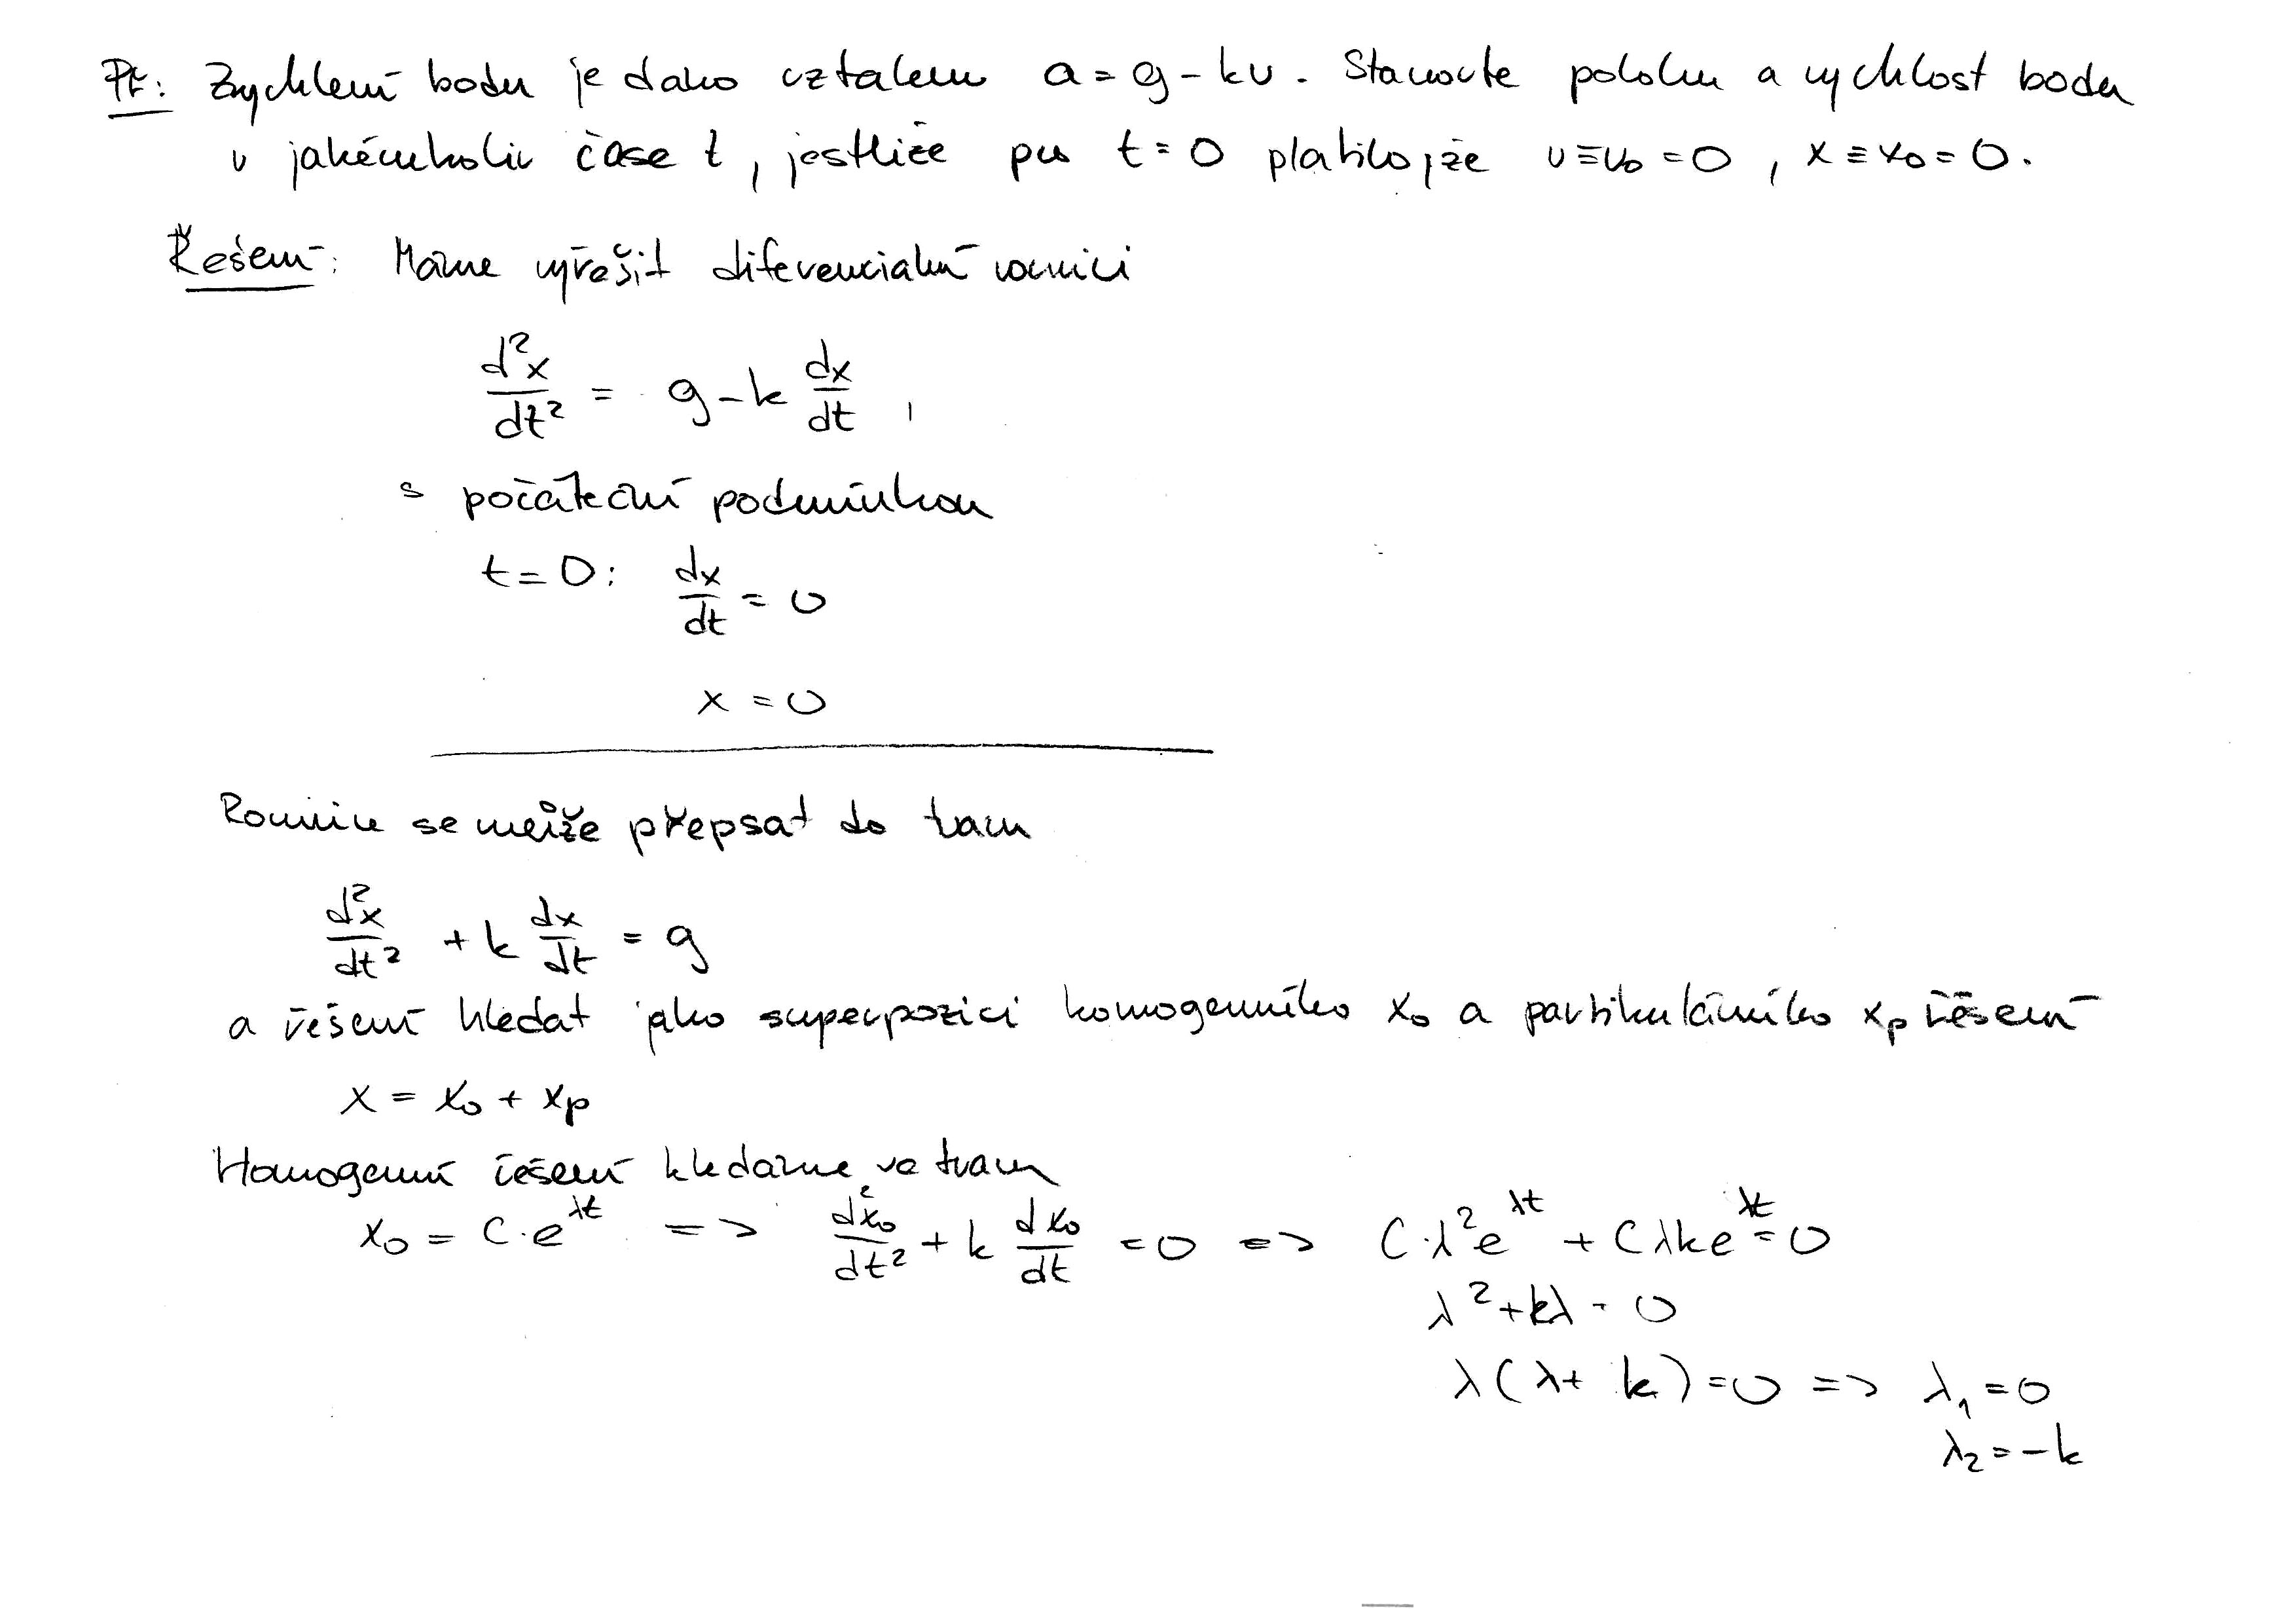 Př: Zrychlení bodu je dáno vztahem a = g - kv. Stanovte polohu a rychlost bodu
v jakémkoliv čase t, jestliže pro t = 0 platilo, že v ≡ v₀ = 0, x ≡ x₀ = 0.
Řešení: Máme vyřešit diferenciální rovnici
d²x/dt² = g - k dx/dt,
s počáteční podmínkou
t = 0: dx/dt = 0
x = 0
Rovnice se může přepsat do tvaru
d²x/dt² + k dx/dt = g
a řešení hledat jako superpozici homogenního x₀ a partikulárního xₚ řešení
x = x₀ + xₚ
Homogenní řešení hledáme ve tvaru
x₀ = C·e^λt => d²x₀/dt² + k dx₀/dt = 0 => C·λ²e^λt + Cλke^λt = 0
λ² + kλ = 0
λ(λ + k) = 0 => λ₁ = 0
λ₂ = -k